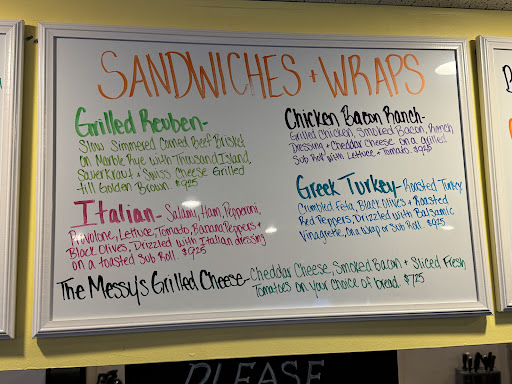 SANDWICHES + WRAPS
Grilled Reuben-
Slow Simmered Corned Beef Brisket
on Marble Rye with Thousand Island,
Sauerkraut + Swiss Cheese Grilled
till Golden Brown. $9.25
Italian- Salami, Ham, Pepperoni,
Provolone, Lettuce, Tomato, Banana Peppers +
Black Olives, Drizzled with Italian dressing
on a toasted Sub Roll. $9.25
Chicken Bacon Ranch-
Grilled Chicken, Smoked Bacon, Ranch
Dressing + Cheddar Cheese on a grilled
Sub Roll with Lettuce + Tomato. $9.25
Greek Turkey- Roasted Turkey
Crumbled Feta, Black Olives + Roasted
Red Peppers, Drizzled with Balsamic
Vinagrette, on a wrap or Sub Roll. $9.25
The Messy's Grilled Cheese- Cheddar Cheese, Smoked Bacon + Sliced Fresh
Tomatoes on your choice of bread. $7.25
PLEASE